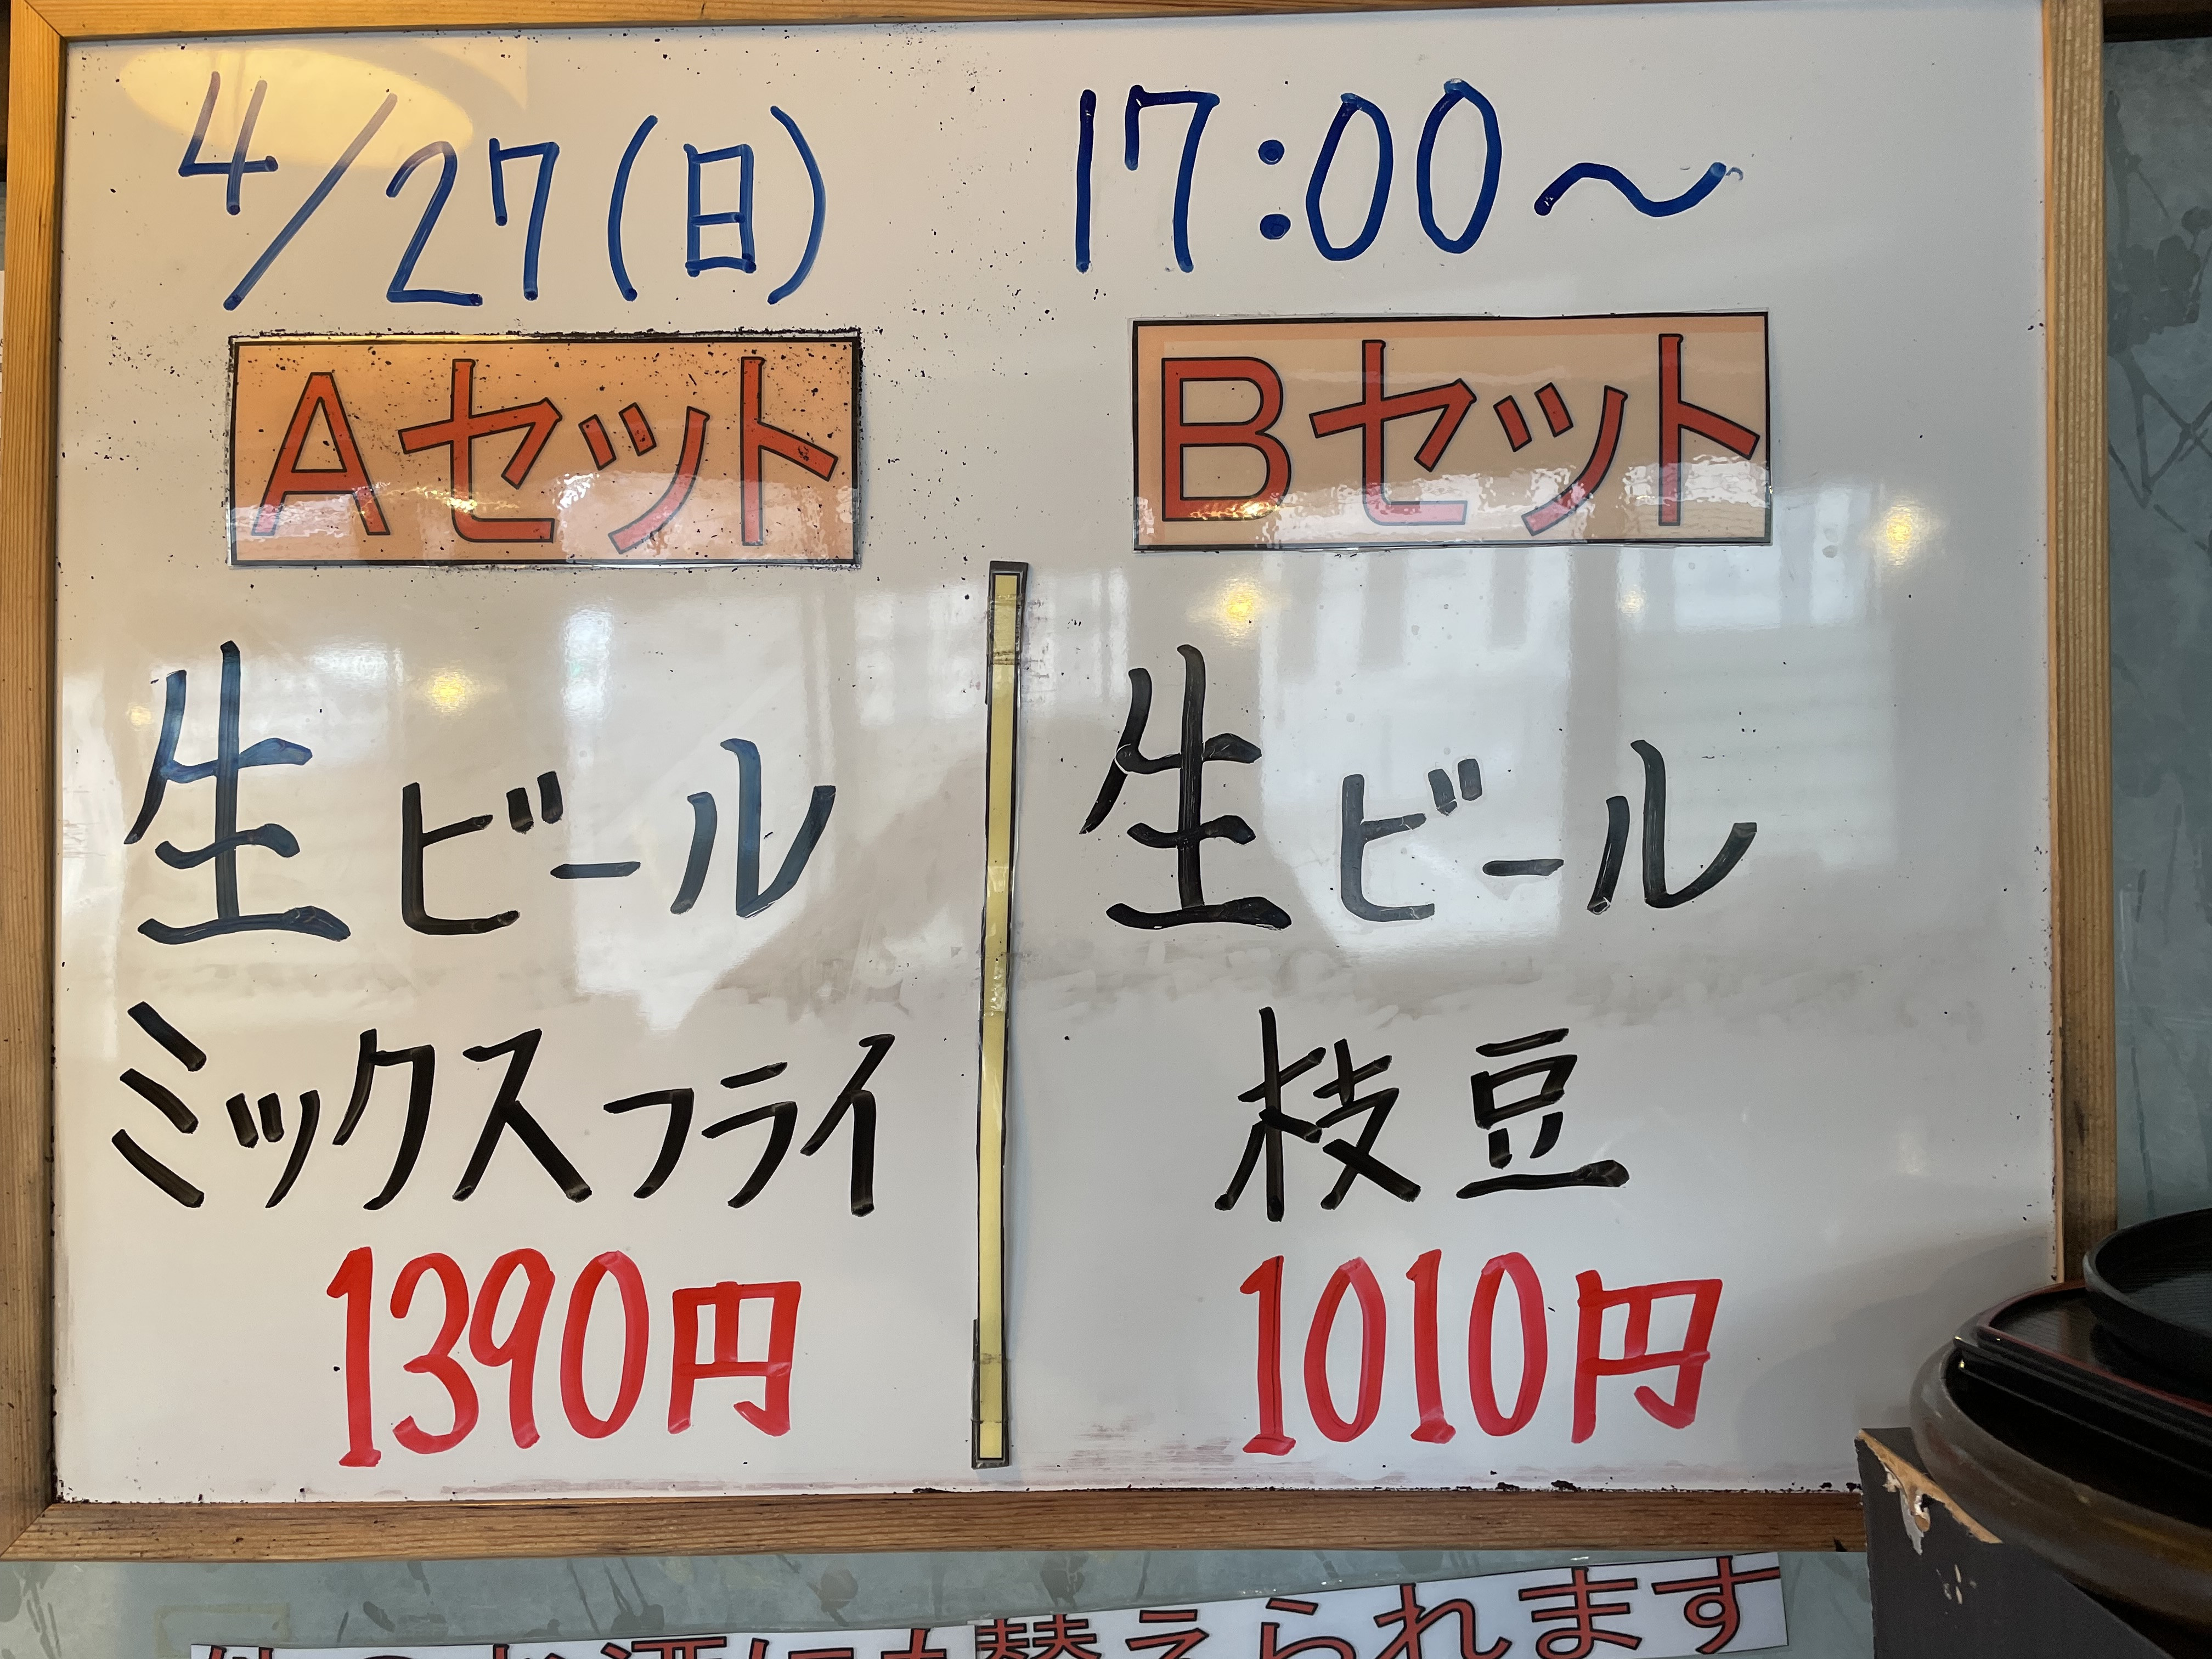 4/27(日) 17:00～
Aセット
生ビール
ミックスフライ
1390円
Bセット
生ビール
枝豆
1010円
他のお酒にも替えられます